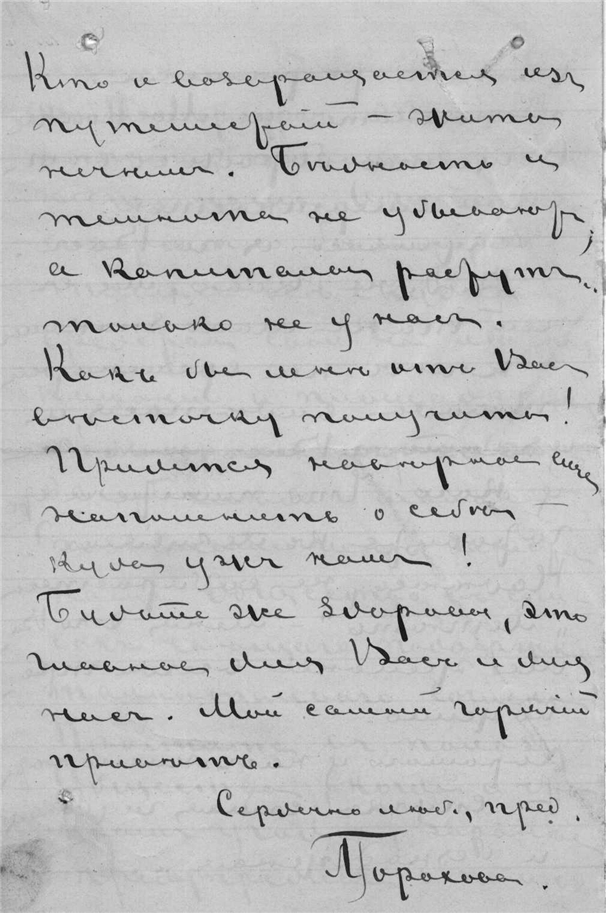 Кто и возвращается изъ
путешествій – жить
нечѣмъ. Бѣдность и
темнота не убываютъ,
а капиталы растутъ,
только не у насъ.
Какъ бы мнѣ отъ Васъ
вѣсточку получить!
Придется навѣрное еще
напомнить о себѣ –
куда ужъ намъ!
Будьте же здоровы, это
главное для Васъ и для
насъ. Мой самый горячій
привѣтъ.
Сердечно люб., пред.
Порохова.